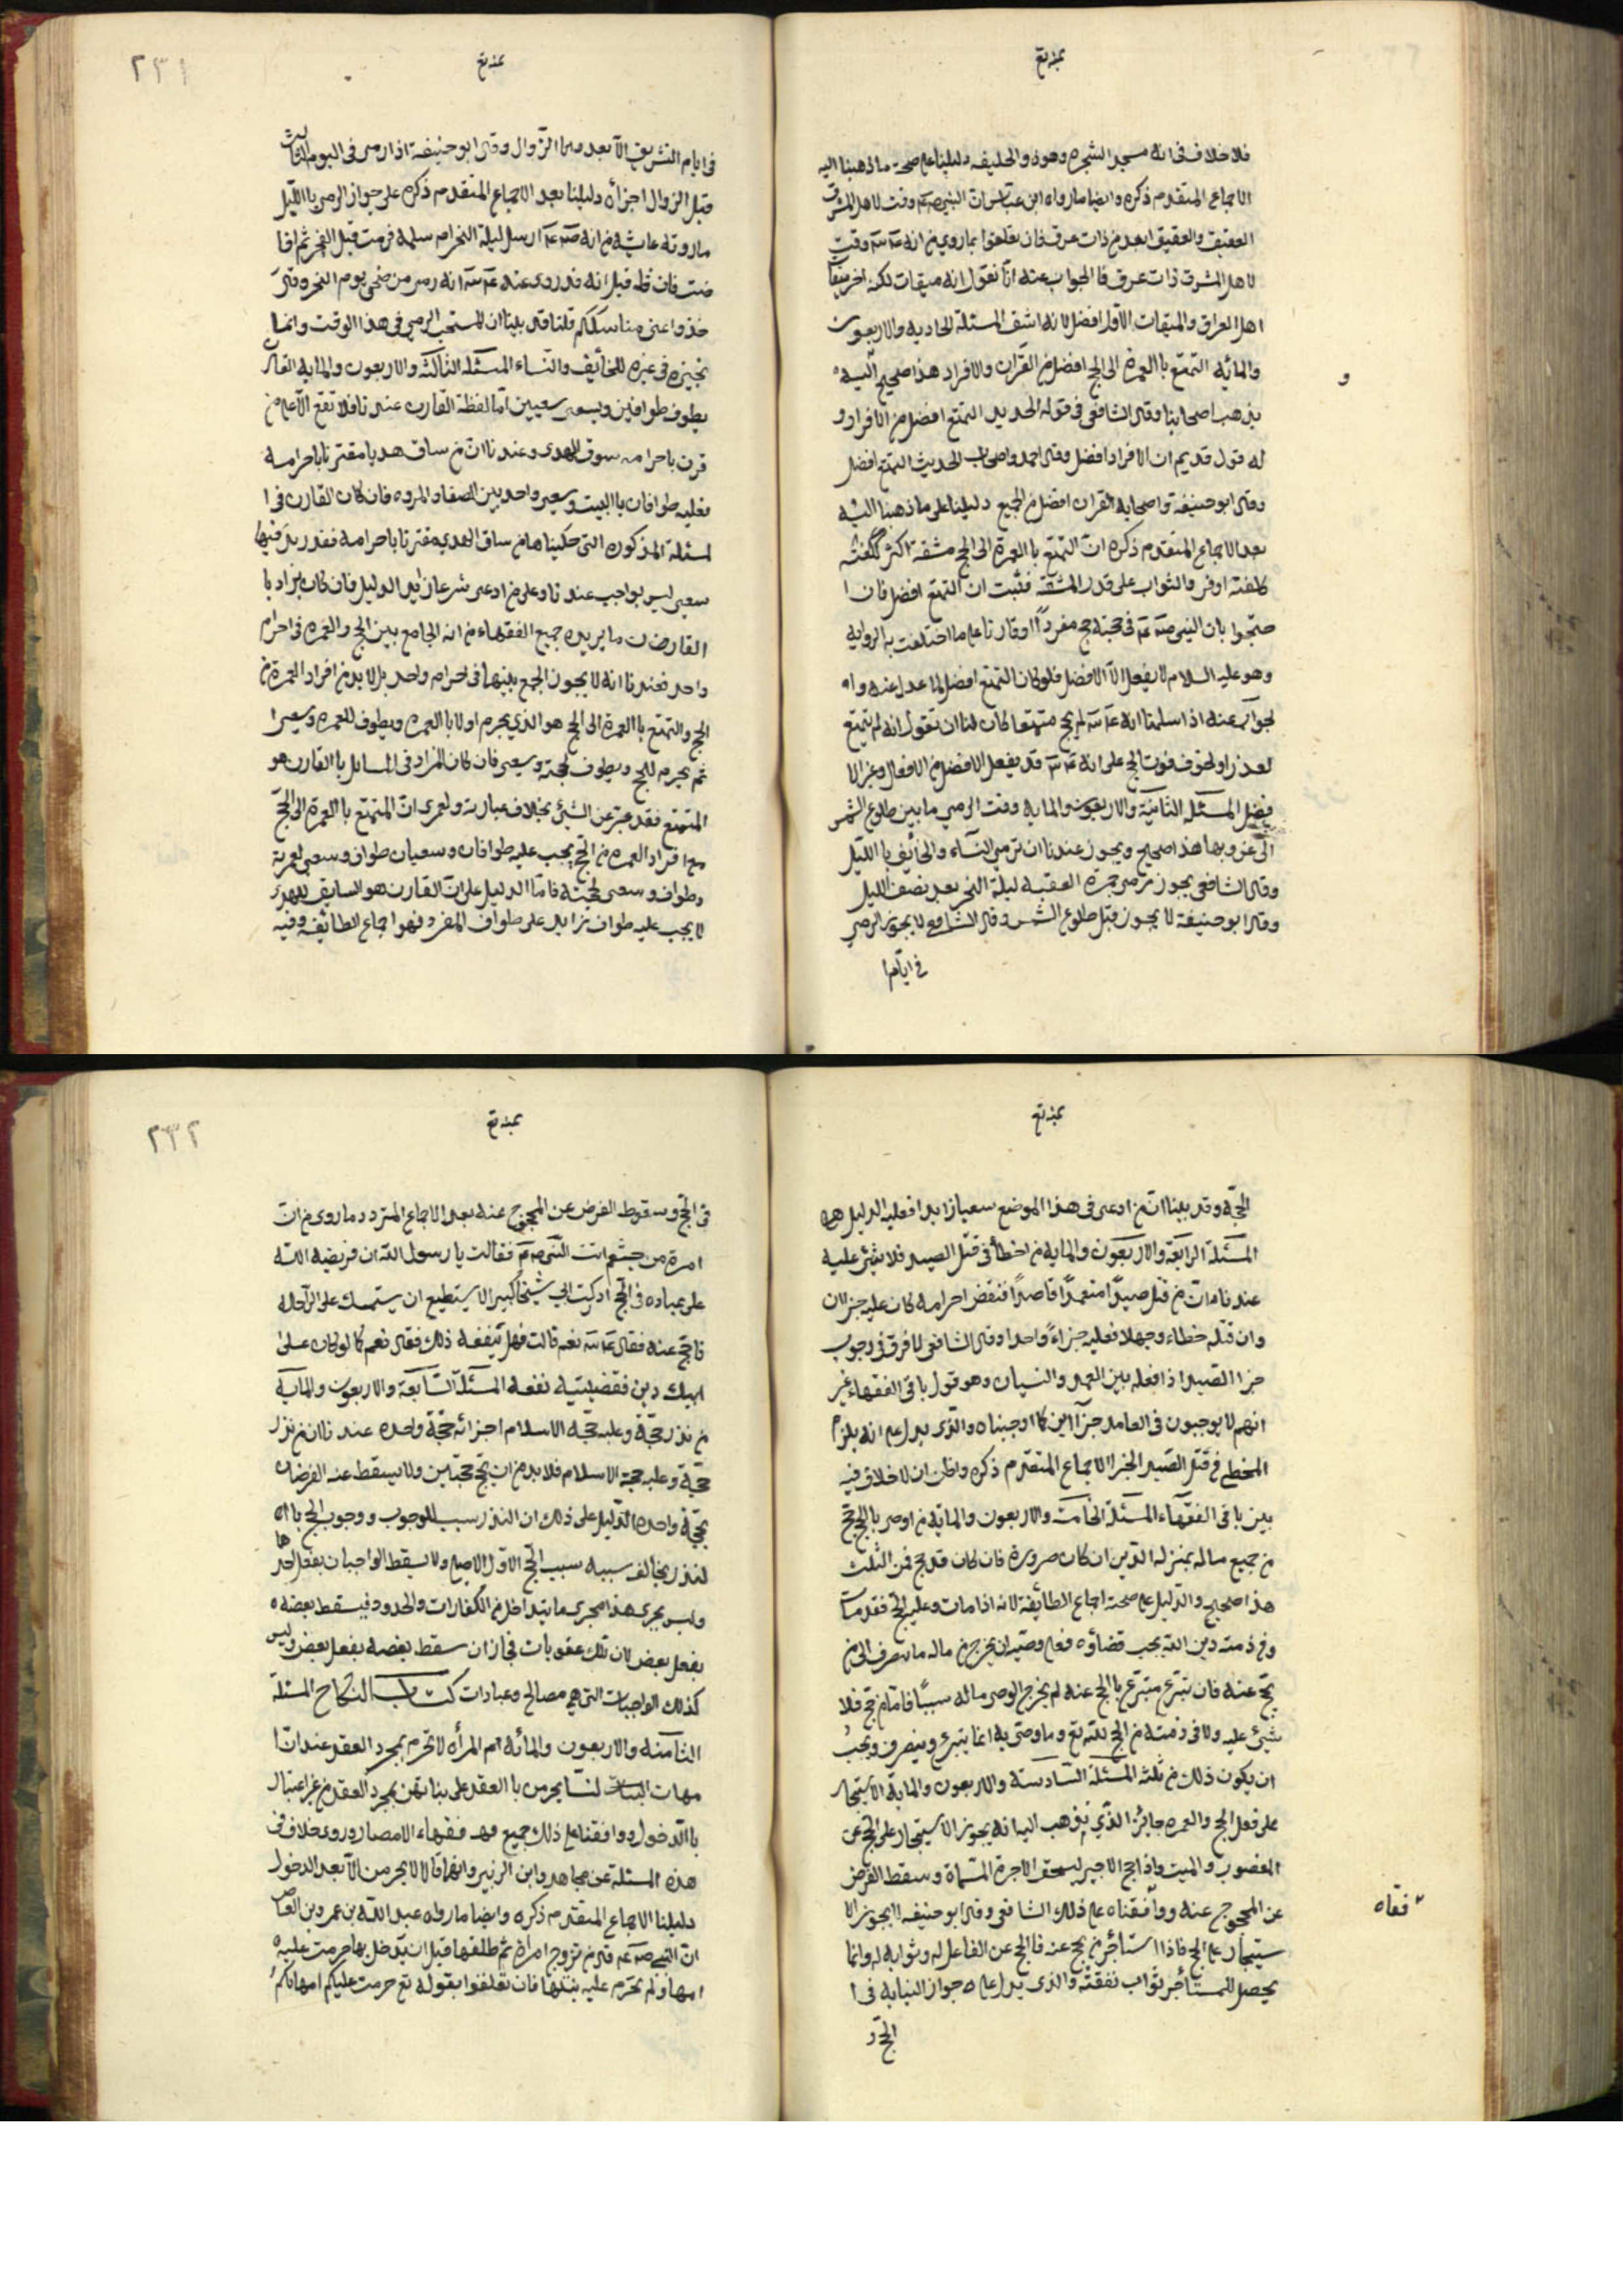 فلا خلاف فى انه مسجد الشجره وهو ذو الحليفه دليلنا على صحة ما ذهبنا اليه
الاجماع المتقدم ذكره وايضا ما رواه ابن عباس ان النبى صم وقت لاهل المشرق
العقيق والعقيق ابعد من ذات عرق فان تعلقوا بما روى من انه عم وقت
لاهل المشرق ذات عرق فالجواب عنه انا نقول انه ميقات لكنه اخر ميقات
اهل العراق والميقات الاول افضل لانه اشق المسئلة الحاديه والاربعون
والمائه التمتع باالعمرة الى الحج افضل من القران والافراد هذا صحيح اليه
و
يذهب اصحابنا وقال الشافعى فى قوله الجديد التمتع افضل من الافراد و
له قول قديم ان الافراد افضل وقال احمد واصحاب الحديث التمتع افضل
وقال ابو حنيفة واصحابه القران افضل من الجميع دليلنا على ما ذهبنا اليه
بعد الاجماع المتقدم ذكره ان التمتع باالعمرة الى الحج مشقة اكثر
كلفته اوفر والثواب على قدر المشقة فثبت ان التمتع افضل فان ا
حتجوا بان النبى صم فى حجته حج مفردًا او قارنا على ما اختلفت به الرواية
وهو عليه السلام لا يفعل الا الافضل فلو كان التمتع افضل لما عدل عنه وا
لجواب عنه اذا سلمنا انه عم لم يحج متمتعا كان لنا ان نقول انه لم يتمتع
لعذر او لخوف فوت الحج على انه عم قد يفعل الافضل من الافعال وغير الا
فضل المسئلة الثانية والاربعون والمايه وقت الرمى ما بين طلوع الشمس
الى غروبها هذا صحيح ويجوز عندنا ان ترمى النساء والخائف باالليل
وقال الشافعى يجوز رمى جمرة العقبه ليلة النحر بعد نصف الليل
وقال ابو حنيفة لا يجوز قبل طلوع الشمس وقال الشافعى لا يجوز الرمى
فى ايام
٢٣١
فى ايام التشريق الا بعد الزوال وقال ابو حنيفة اذا رمى فى اليوم الثالث
قبل الزوال اجزأه دليلنا بعد الاجماع المتقدم ذكره على جواز الرمى باالليل
ما روته عايشه من انه صم ارسل ليلة النحر ام سلمه فرمت قبل الفجر ثم افا
ضت فان قيل انه قد روى عنه عم انه رمى من ضحى يوم النحر وقال
خذوا عنى مناسككم قلنا قد بينا ان المستحب الرمى فى هذا الوقت وانما
نجيزه فى غيره للخائف والنساء المسئلة الثالثة والاربعون والمايه القارن
يطوف طوافين ويسعى سعيين اما لفظة القارن عندنا فلا تقع الا على من
قرن باحرامه سوق الهدى وعندنا ان من ساق هديا مقترنا باحرامه
فعليه طوافان باالبيت وسعى واحد بين الصفا والمروه فان كان القارن فى ا
لمسئلة المذكوره التى حكيناها من ساق الهدى مقترنا باحرامه فقد زيد فيها
سعى ليس بواجب عندنا وعلى من ادعى شرعا زايد الدليل فان كان يراد با
القارن ما يريده جميع الفقهاء من انه الجامع بين الحج والعمره فى احرام
واحد فعندنا انه لا يجوز الجمع بينهما فى احرام واحد بل لا بد من افراد العمرة من
الحج والتمتع باالعمرة الى الحج هو الذى يحرم اولا باالعمره ويطوف للعمره ويسعى
ثم يحرم للحج ويطوف لحجته ويسعى فان كان المراد فى المسائل باالقارن هو
المتمتع فقد عبر عن الشئ بخلاف عبارته ولعمرى ان المتمتع باالعمرة الى الحج
مع افراد العمره من الحج يجب عليه طوافان وسعيان طواف وسعى لعمرته
وطواف وسعى لحجته فاما الدليل على ان القارن هو السايق للهدى
لا يجب عليه طواف زايد على طواف المفرد فهو اجماع الطائفه وفيه
الحجة وقد بينا ان من ادعى فى هذا الموضع سعيا زايدا فعليه الدليل
المسئلة الرابعة والاربعون والمايه من اخطأ فى قتل الصيد فلا شئ عليه
عندنا ان من قتل صيدًا متعمدًا قاصدًا فنقض احرامه كان عليه جزاان
وان قتله خطاء وجهلا فعليه جزاءً واحدا وقال الشافعى لا فرق فى وجوب
جزا الصيد اذا فعله بين العمد والنسيان وهو قول باقى الفقهاء غير
انهم لا يوجبون فى العامد جزآاين كما اوجبناه والذى يدل على انه يلزم
المخطى فى قتل الصيد الجزا الاجماع المتقدم ذكره واظن ان لا خلاف فيه
بين باقى الفقهاء المسئلة الخامسة والاربعون والماية من اوصى بالحج حج
من جميع ماله بمنزلة الدين ان كان صرورة فان كان قد حج فمن الثلث
هذا صحيح والدليل على صحته اجماع الطائفة لانه اذا مات وعليه الحج فقد مات
وفى ذمته دين الله يجب قضاؤه فعلى وصيه ان يخرج من ماله ما يصرف الى من
يحج عنه فان تبرع متبرع بالحج عنه لم يخرج الوصى من ماله سببًا فاما من حج فلا
شئ عليه ولا فى ذمته من الحج لله تع وما وصى به انما يتبرع ويتصرف ويجب
ان يكون ذلك من ثلثه المسئلة السادسة والاربعون والماية الاستيجار
على فعل الحج والعمره جائز الذى نذهب اليه انه يجوز الاستيجار على الحج عن
المعضوب والميت واذا حج الاجير استحق الاجرة المسماة وسقط الفرض
عن المحجوج عنه ووافقناه على ذلك الشافعى وقال ابو حنيفه لا يجوز الا
فقاه
ستيجار على الحج فاذا استأجر من يحج عنه فالحج عن الفاعل له وثوابه له وانما
يحصل للمستأجر ثواب نفقته والذى يدل على جواز النيابه فى ا
الحج و
٢٣٢
فى الحج وسقوط الفرض عن المحجوج عنه بعد الاجماع المتردد ما روى من ان
امرة من خثعم اتت النبى صم فقالت يا رسول الله ان فريضه الله
على عباده فى الحج ادركت ابى شيخا كبيرا لا يستطيع ان يستمسك على الراحله
فاحج عنه فقال عم نعم قالت فهل ينفعه ذلك فقال نعم كما لو كان على
ابيك دين فقضيتيه نفعه المسئلة السابعة والاربعون والماية
من نذر حجة وعليه حجة الاسلام اجزائه حجة واحده عندنا ان من نذر
حجة وعليه حجة الاسلام فلا بد من ان يحج حجتين ولا يسقط عنه الفرضان
بحجة واحده الدليل على ذلك ان النذر سبب للوجوب ووجوب الحج باا
لنذر يخالف سببه سبب الحج الاول الاصلى ولا يسقط الواجبان بفعل احدهما
وليس يجرى هذا مجرى ما يتداخل من الكفارات والحدود فيسقط بعضه
بفعل بعض لان تلك عقوبات فجاز ان سقط بعضه بفعل بعض وليس
كذلك الواجبات التى هى مصالح وعبادات كتاب النكاح المسئلة
الثامنه والاربعون والمائه ام المرأه لا تحرم بمجرد العقد عندنا ا
مهات النساء يحرمن باالعقد على بناتهن بمجرد العقد من غير اعتبار
باالدخول ووافقنا على ذلك جميع فقهاء الامصار وروى خلاف فى
هذه المسئلة عن مجاهد وابن الزبير وانهما قالا لا يحرمن الا بعد الدخول
دليلنا الاجماع المتقدم ذكره وايضا ما رواه عبد الله بن عمرو بن العاص
ان النبى صم قال من تزوج امراة ثم طلقها قبل ان يدخل بها حرمت عليه
امها ولم تحرم عليه بنتها فان تعلقوا بقوله تع حرمت عليكم امهاتكم